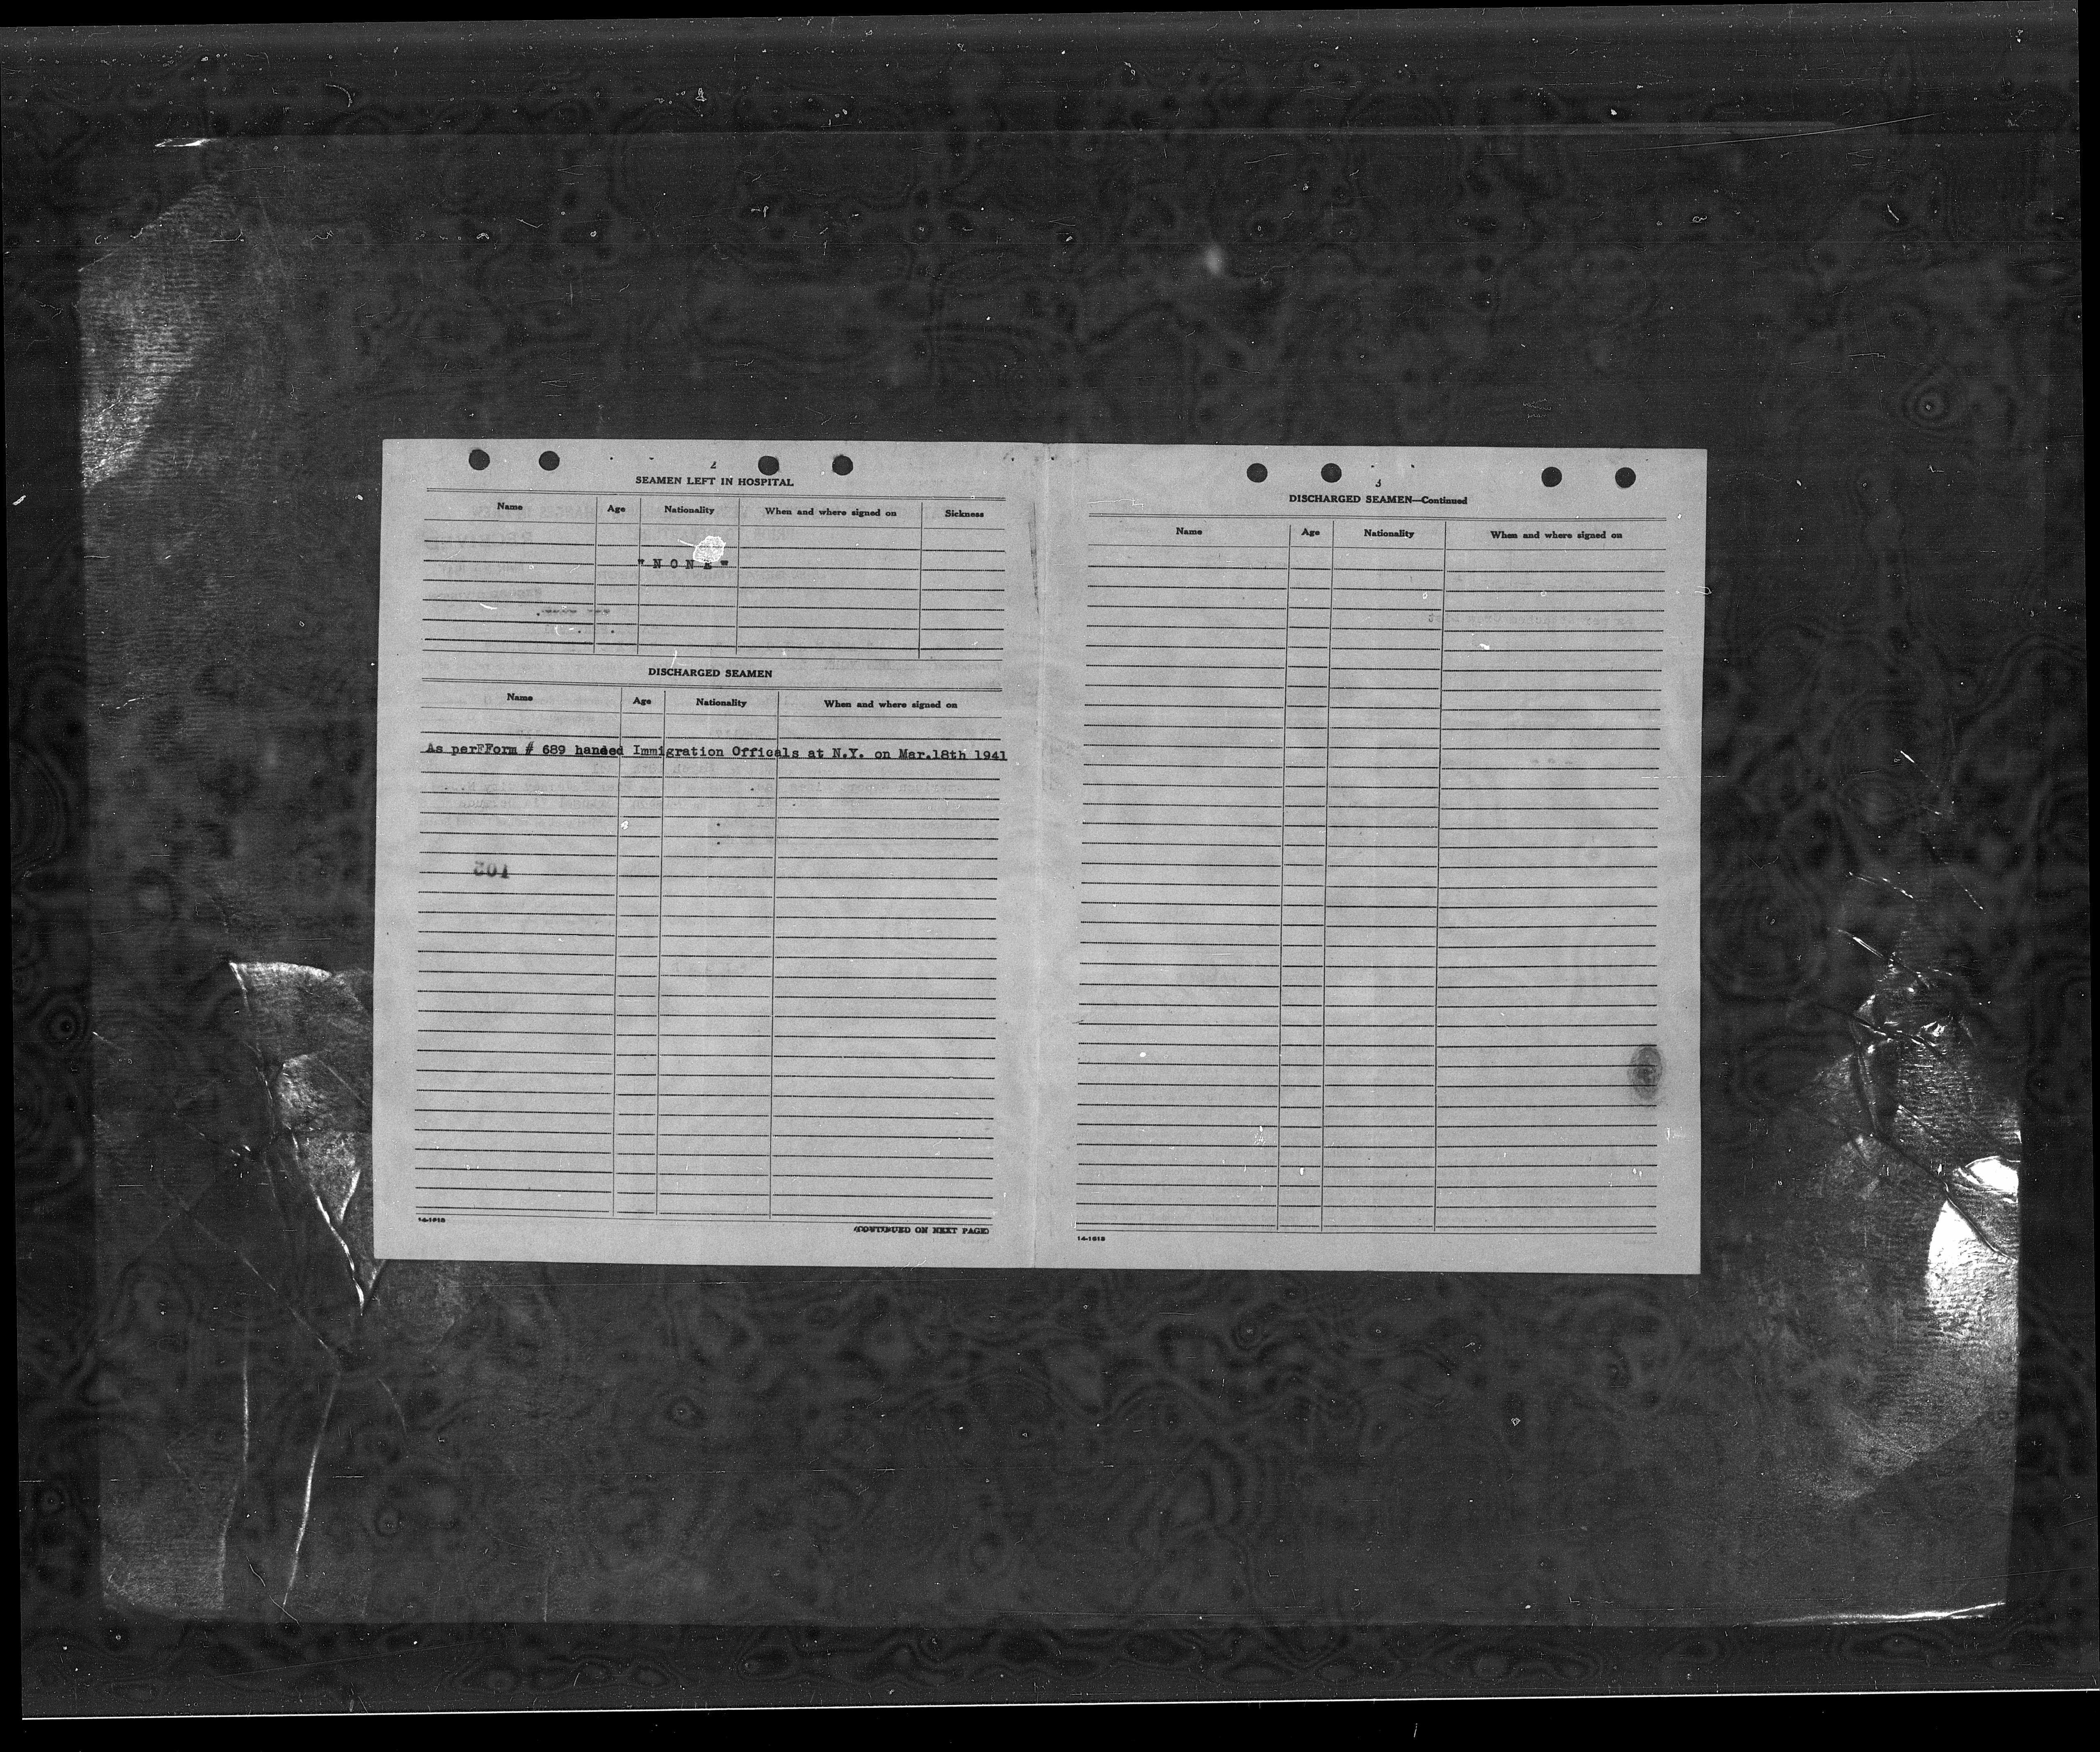 2
SEAMEN LEFT IN HOSPITAL
Name Age Nationality When and where signed on Sickness
"NONE"
DISCHARGED SEAMEN
Name Age Nationality When and where signed on
As perFForm # 689 handed Immigration Officals at N.Y. on Mar.18th 1941
14-1618
(CONTINUED ON NEXT PAGE)
3
DISCHARGED SEAMEN—Continued
Name Age Nationality When and where signed on
14-1618